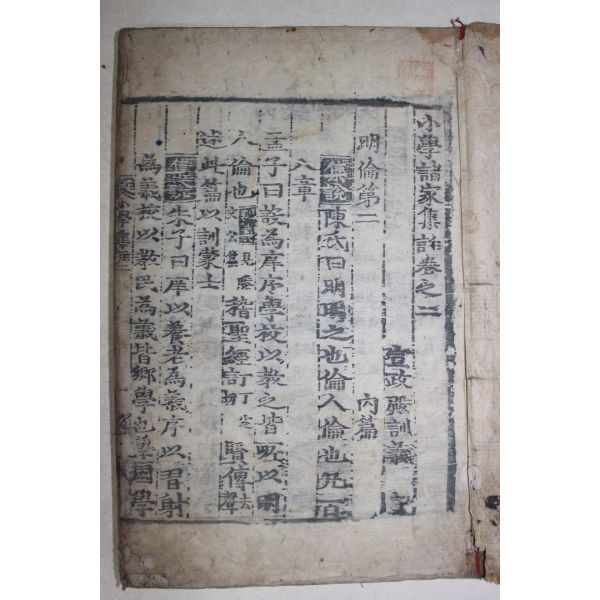 小學諸家集註卷之二
宣政殿訓義
明倫第二 內篇
集說 陳氏曰明明之也倫人倫也凡一百
八章
孟子曰設為庠序學校以教之皆所以明
人倫也 稽聖經訂賢傳
述此篇以訓蒙士
朱子曰庠以養老為義序以習射
為義校以教民為義皆鄉學也學國學